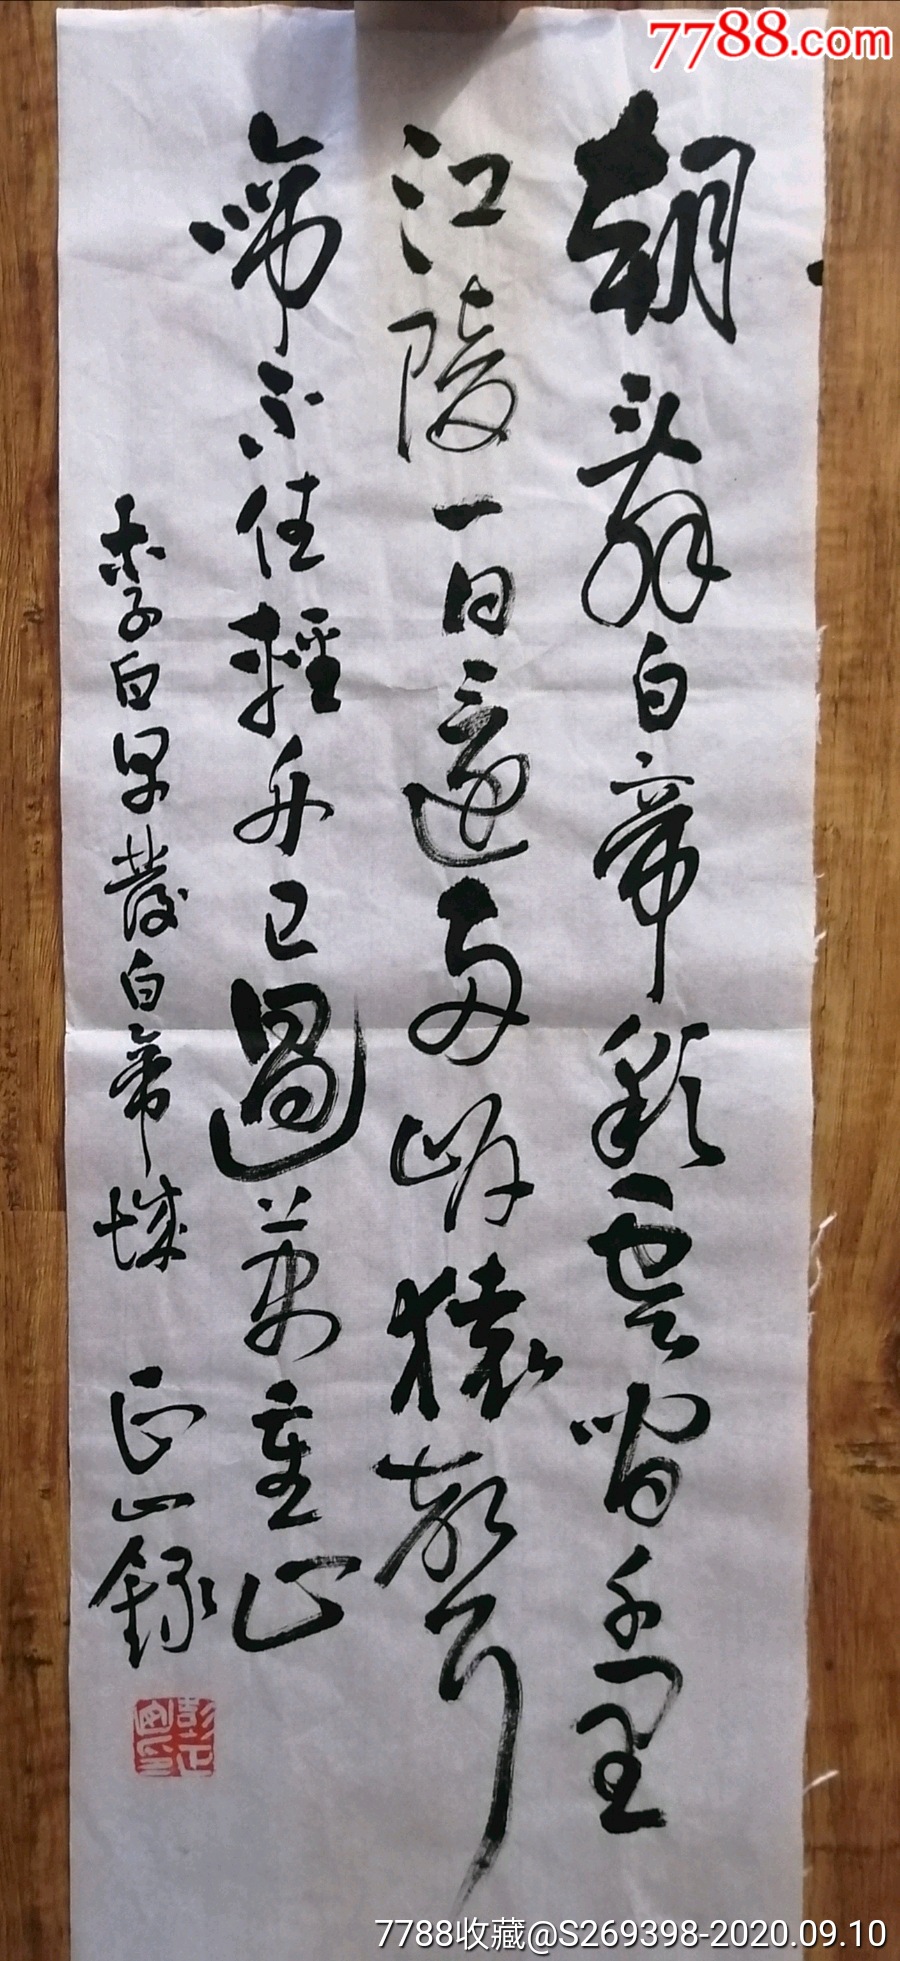 7788.com
朝辭白帝彩雲間千里
江陵一日還兩岸猿聲
啼不住輕舟已過萬重山
李白早發白帝城 正山錄
彭正山印
7788收藏@S269398-2020.09.10